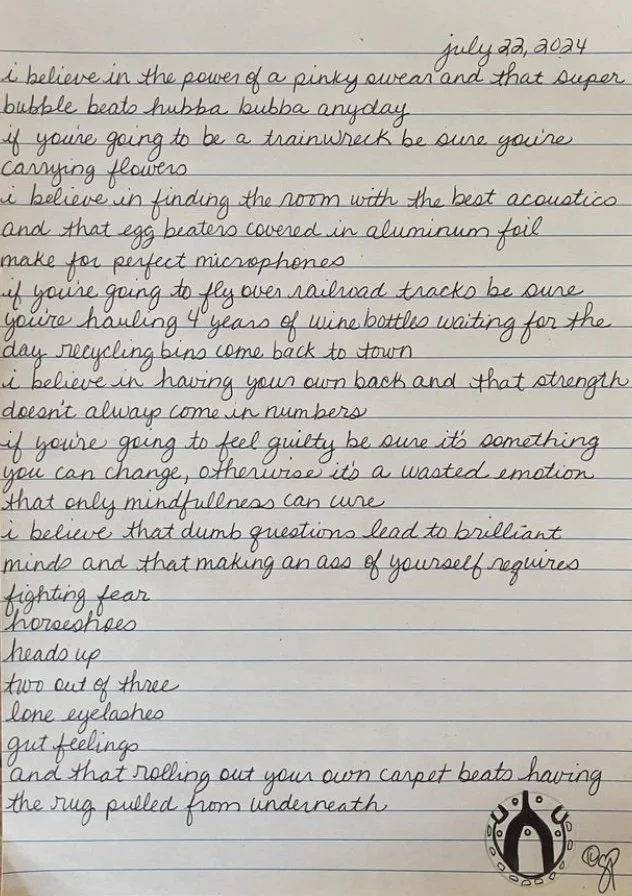 july 22, 2024
i believe in the power of a pinky swear and that super
bubble beats hubba bubba anyday
if you're going to be a trainwreck be sure you're
carrying flowers
i believe in finding the room with the best acoustics
and that egg beaters covered in aluminum foil
make for perfect microphones
if you're going to fly over railroad tracks be sure
you're hauling 4 years of wine bottles waiting for the
day recycling bins come back to town
i believe in having your own back and that strength
doesn't always come in numbers
if you're going to feel guilty be sure it's something
you can change, otherwise it's a wasted emotion
that only mindfullness can cure
i believe that dumb questions lead to brilliant
minds and that making an ass of yourself requires
fighting fear
horseshoes
heads up
two out of three
lone eyelashes
gut feelings
and that rolling out your own carpet beats having
the rug pulled from underneath